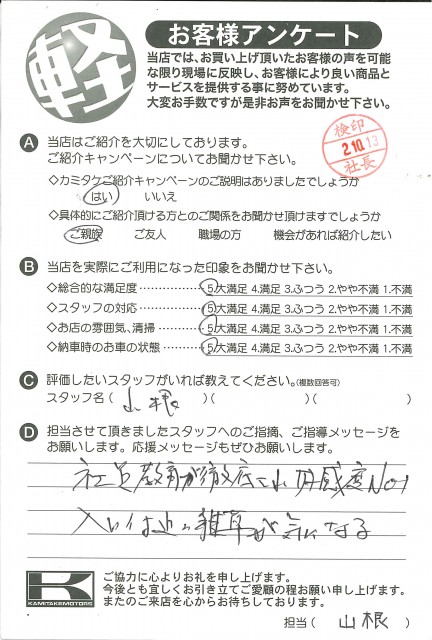 軽
お客様アンケート
当店では、お買い上げ頂いたお客様の声を可能
な限り現場に反映し、お客様により良い商品と
サービスを提供する事に努めています。
大変お手数ですが是非お声をお聞かせ下さい。
検印
2.10.13
社長
A 当店はご紹介を大切にしております。
ご紹介キャンペーンについてお聞かせ下さい。
◇カミタケご紹介キャンペーンのご説明はありましたでしょうか
はい いいえ
◇具体的にご紹介頂ける方とのご関係をお聞かせ頂けますでしょうか
ご親族 ご友人 職場の方 機会があれば紹介したい
B 当店を実際にご利用になった印象をお聞かせ下さい。
◇総合的な満足度…………5.大満足 4.満足 3.ふつう 2.やや不満 1.不満
◇スタッフの対応…………5.大満足 4.満足 3.ふつう 2.やや不満 1.不満
◇お店の雰囲気、清掃………5.大満足 4.満足 3.ふつう 2.やや不満 1.不満
◇納車時のお車の状態………5.大満足 4.満足 3.ふつう 2.やや不満 1.不満
C 評価したいスタッフがいれば教えてください。(複数回答可)
スタッフ名(山根)( )( )
D 担当させて頂きましたスタッフへのご指摘、ご指導メッセージを
お願いします。応援メッセージもぜひお願いします。
社員教育が徹底され 好感度No1
入り口付近の雑草が気になる
K
KAMITAKEMOTORS
ご協力に心よりお礼を申し上げます。
今後とも宜しくお引き立てご愛顧の程お願い申し上げます。
またのご来店を心からお待ちしております。
担当(山根)